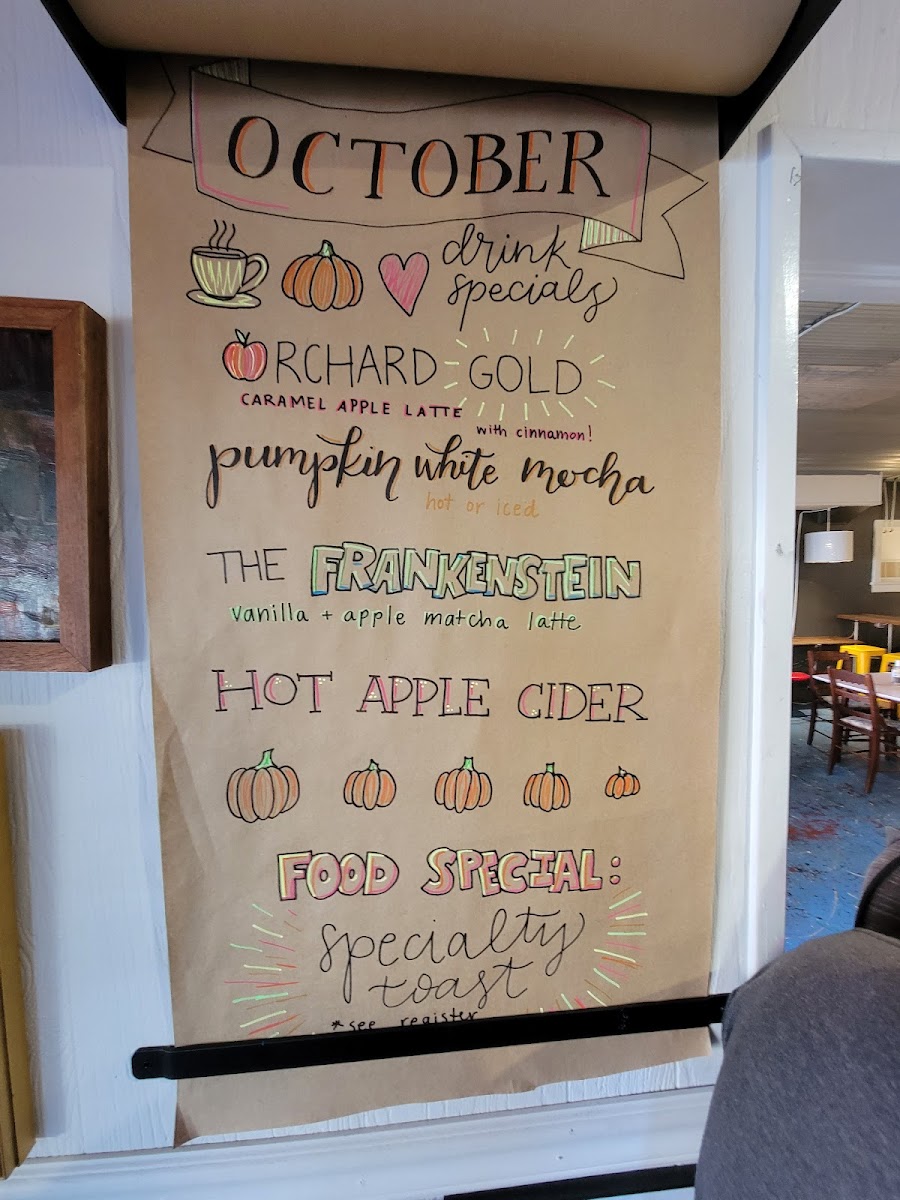 OCTOBER
drink
specials
ORCHARD GOLD
CARAMEL APPLE LATTE
with cinnamon!
pumpkin white mocha
hot or iced
THE FRANKENSTEIN
vanilla + apple matcha latte
HOT APPLE CIDER
FOOD SPECIAL:
specialty
toast
*see register